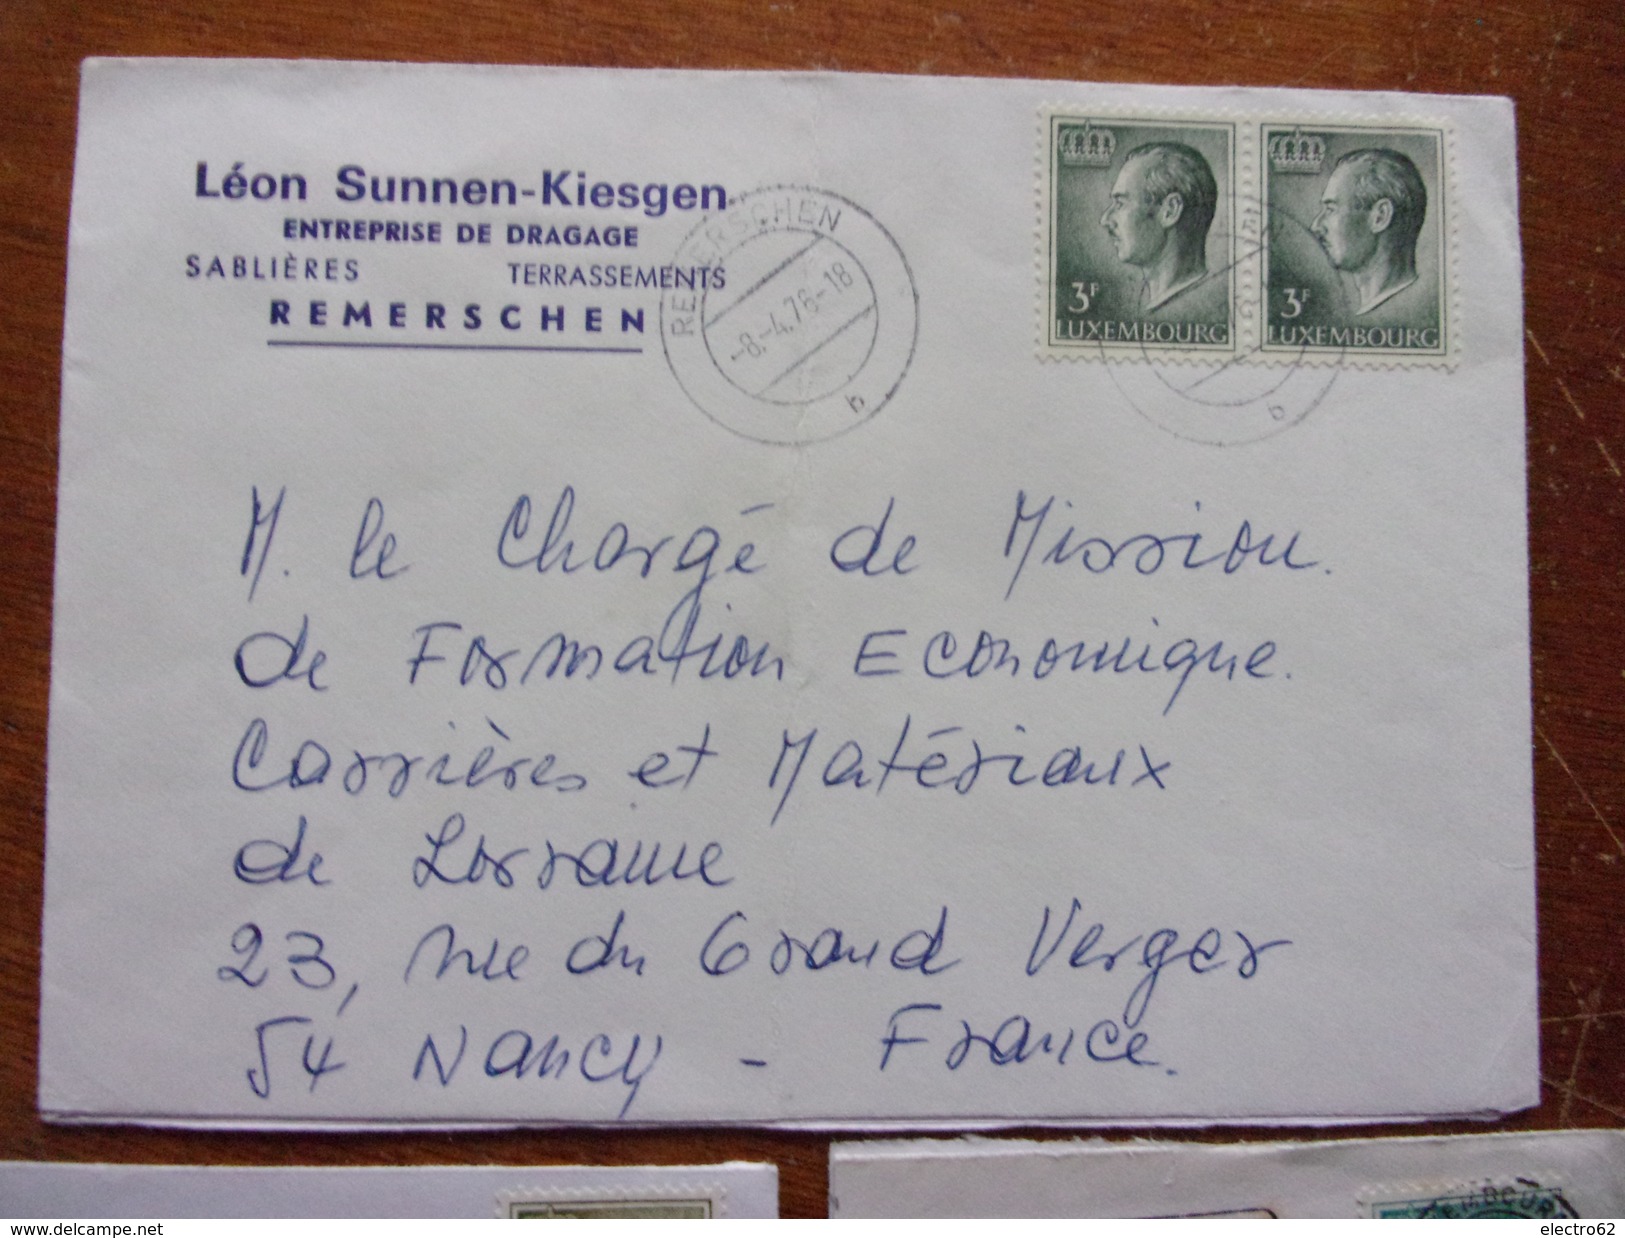 Léon Sunnen-Kiesgen
ENTREPRISE DE DRAGAGE
SABLIÈRES TERRASSEMENTS
REMERSCHEN
REMERSCHEN
-8.-4.76-18
b
3F
LUXEMBOURG
3F
LUXEMBOURG
b
M. le Chargé de Mission.
de Formation Economique.
Carrières et Matériaux
de Lorraine
23, rue du Grand Verger
54 Nancy - France.
http://www.delcampe.net
electro62